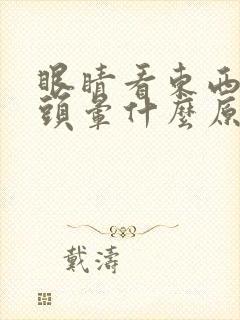 眼睛看東西
頭暈什麼原
戴濤